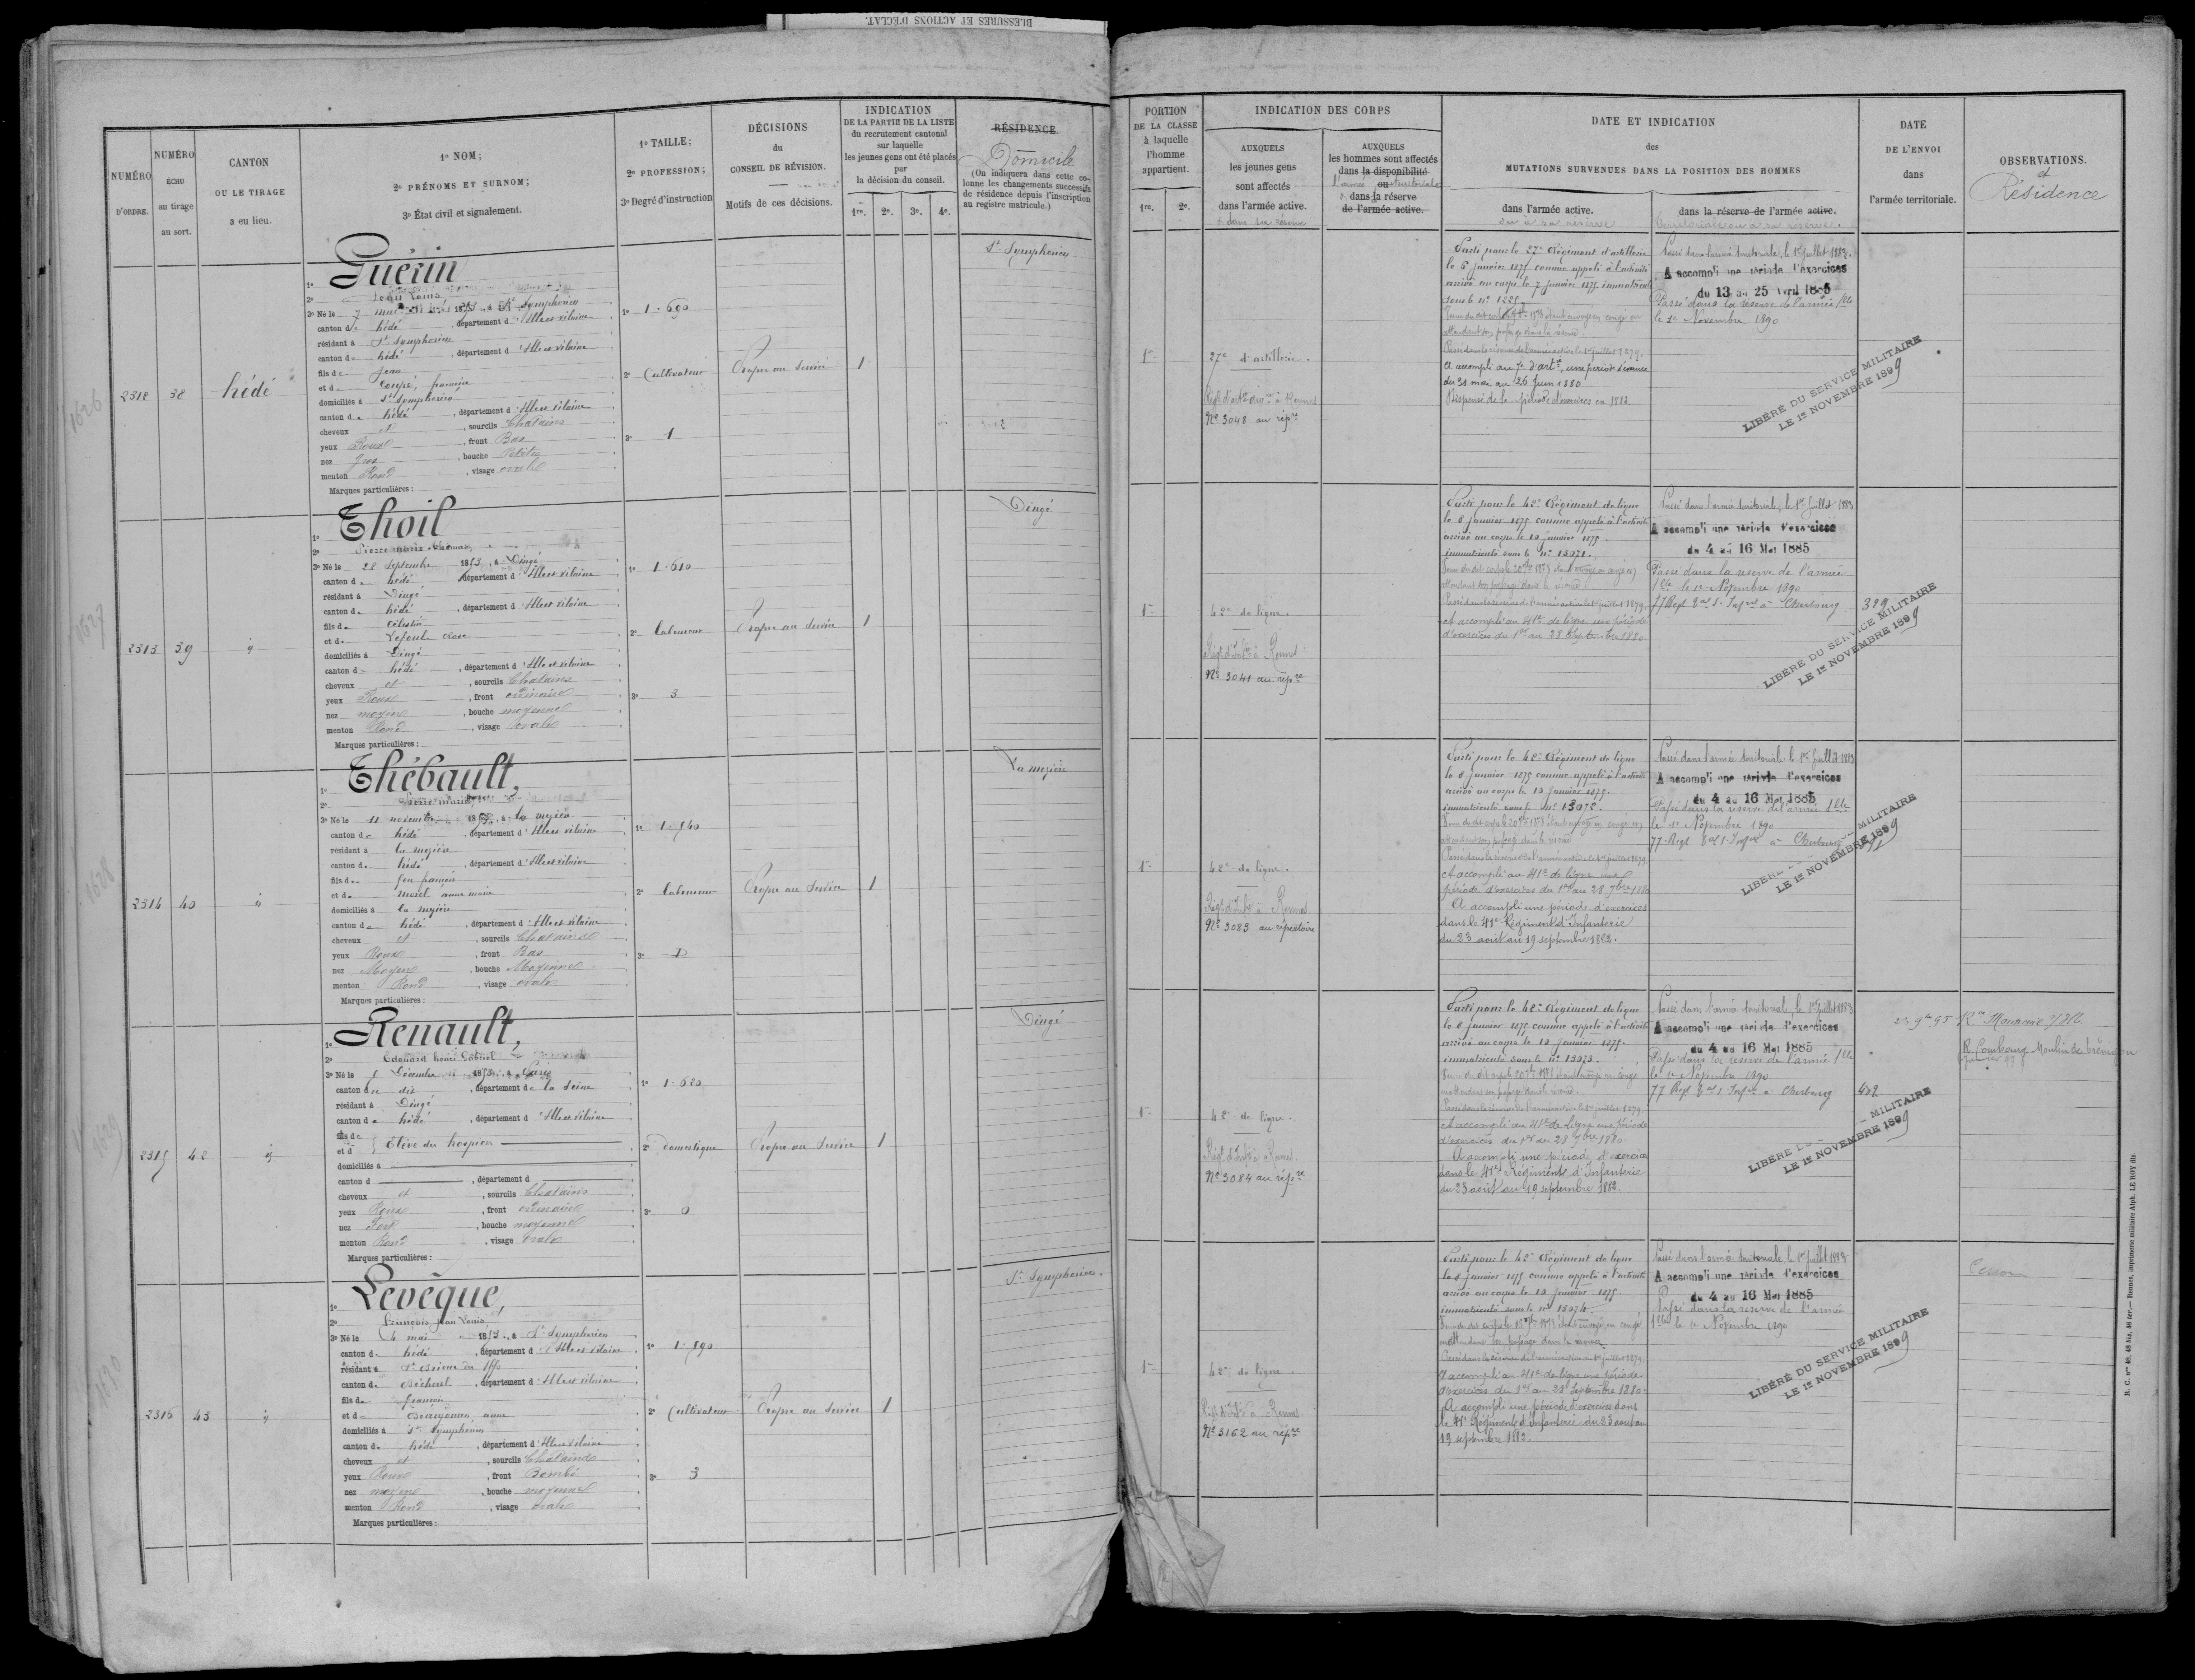 BLESSURES ET ACTIONS D'ÉCLAT.
NUMÉRO D'ORDRE.
NUMÉRO ÉCHU au tirage au sort.
CANTON OU LE TIRAGE a eu lieu.
1º NOM;
2º PRÉNOMS ET SURNOM;
3º État civil et signalement.
1º TAILLE;
2º PROFESSION;
3º Degré d'instruction
DÉCISIONS du CONSEIL DE RÉVISION.
Motifs de ces décisions.
INDICATION DE LA PARTIE DE LA LISTE du recrutement cantonal sur laquelle les jeunes gens ont été placés par la décision du conseil.
1re. 2e. 3e. 4e.
RÉSIDENCE
Domicile
(On indiquera dans cette colonne les changements successifs de résidence depuis l'inscription au registre matricule.)
1626
2312 38 hédé
1º Guérin
2º Jean Louis
3º Né le 7 mai 1853, à St Symphorien
canton de hédé, département d'Ille et vilaine
résidant à St Symphorien
canton de hédé, département d'Ille et vilaine
fils de Jean
et de Coupé,
domiciliés à St Symphorien
canton de hédé, département d'Ille et vilaine
cheveux et, sourcils Chatains
yeux Roux, front Bas
nez Gros, bouche Petite
menton Rond, visage ovale
Marques particulières:
1º 1.690
2º Cultivateur
3º 1
Propre au Service
1
St Symphorien
1627
2313 39 id
1º Thoil
2º Pierre marie
3º Né le 28 Septembre 1853, à Dingé
canton de hédé, département d'Ille et vilaine
résidant à Dingé
canton de hédé, département d'Ille et vilaine
fils de Célestin
et de Lefeul Rose
domiciliés à Dingé
canton de hédé, département d'Ille et vilaine
cheveux et, sourcils Chatains
yeux Roux, front ordinaire
nez moyen, bouche moyenne
menton Rond, visage ovale
Marques particulières:
1º 1.610
2º Laboureur
3º 3
Propre au Service
1
Dingé
1628
2314 40 id
1º Thébault,
2º Pierre marie
3º Né le 11 novembre 1853, à La mézière
canton de hédé, département d'Ille et vilaine
résidant à La mézière
canton de hédé, département d'Ille et vilaine
fils de feu françois
et de morel anne marie
domiciliés à La mézière
canton de hédé, département d'Ille et vilaine
cheveux et, sourcils Chatains
yeux Roux, front Bas
nez Moyen, bouche Moyenne
menton Rond, visage ovale
Marques particulières:
1º 1.540
2º Laboureur
3º D
Propre au Service
1
La mézière
1629
2315 42 id
1º Renault,
2º Edouard henri Gabriel
3º Né le 5 Décembre 1853, à Paris
canton du dit, département de la Seine
résidant à Dingé
canton de hédé, département d'Ille et vilaine
fils de et d Elève des hospices
domiciliés à
canton d, département d
cheveux et, sourcils Chatains
yeux Roux, front ordinaire
nez Fort, bouche moyenne
menton Rond, visage ovale
Marques particulières:
1º 1.620
2º Domestique
3º 0
Propre au Service
1
Dingé
1630
2316 43 id
1º Levêque,
2º François jean Louis,
3º Né le 4 mai 1853, à St Symphorien
canton de hédé, département d'Ille et vilaine
résidant à St Brieuc des Iffs
canton de Bécherel, département d'Ille et vilaine
fils de françois
et de anne
domiciliés à St Symphorien
canton de hédé, département d'Ille et vilaine
cheveux et, sourcils Chatains
yeux Roux, front Bombé
nez moyen, bouche moyenne
menton Rond, visage ovale
Marques particulières:
1º 1.590
2º Cultivateur
3º 3
Propre au Service
1
St Symphorien.
PORTION DE LA CLASSE à laquelle l'homme appartient.
1re. 2e.
INDICATION DES CORPS
AUXQUELS les jeunes gens sont affectés dans l'armée active.
& dans sa réserve
AUXQUELS les hommes sont affectés dans la disponibilité ou dans la réserve de l'armée active.
l'armée territoriale
DATE ET INDICATION des MUTATIONS SURVENUES DANS LA POSITION DES HOMMES
dans l'armée active.
ou à sa réserve
dans la réserve de l'armée active.
territoriale ou à sa réserve.
DATE DE L'ENVOI dans l'armée territoriale.
OBSERVATIONS.
et
Résidence
1re
27e d'artillerie.
Régt d'artie divre à Rennes
No 3048 au répre
Parti pour le 27e Régiment d'artillerie
le 6 janvier 1875 comme appelé à l'activité
arrivé au corps le 7 janvier 1875. immatriculé
sous le no 1225.
attendant son passage dans la réserve.
Passé dans la réserve de l'armée active le 1er juillet 1879.
A accompli au 7e d'artie, une période d'exercices
du 31 mai au 26 Juin 1880
Dispensé de la période d'exercices en 1882.
Passé dans l'armée territoriale, le 1er juillet 1883.
A accompli une période d'exercices
du 13 au 25 Avril 1885
Passé dans la réserve de l'armée tlle
le 1er Novembre 1890
LIBÉRÉ DU SERVICE MILITAIRE
LE 1er NOVEMBRE 1899
1re
42e de ligne.
Régt d'Infie à Rennes
No 3041 au répre
Parti pour le 42e Régiment de ligne
le 8 janvier 1875 comme appelé à l'activité
arrivé au corps le 10 janvier 1875.
immatriculé sous le no 13071.
attendant son passage dans la réserve
Passé dans la réserve de l'armée active le 1er juillet 1879.
A accompli au 41e de ligne une période
d'exercices du 1er au 28 Septembre 1880
Passé dans l'armée territoriale, le 1er Juillet 1883
A accompli une période d'exercices
du 4 au 16 Mai 1885
Passé dans la réserve de l'armée
tlle le 1er Novembre 1890
77 Regt tal d'Infie à Cherbourg 329
LIBÉRÉ DU SERVICE MILITAIRE
LE 1er NOVEMBRE 1899
1re
42e de ligne.
Régt d'Infie à Rennes
No 3083 au répertoire
Parti pour le 42e Régiment de ligne
le 8 janvier 1875 comme appelé à l'activité
arrivé au corps le 10 janvier 1875.
immatriculé sous le no 13072.
attendant son passage dans la réserve
Passé dans la réserve de l'armée active le 1er juillet 1879.
A accompli au 41e de ligne une
période d'exercices du 1er au 28 7bre 1880
A accompli une période d'exercices
dans le 41e Régiment d'Infanterie
du 23 août au 19 septembre 1882.
Passé dans l'armée territoriale, le 1er Juillet 1883
A accompli une période d'exercices
du 4 au 16 Mai 1885
Passé dans la réserve de l'armée tlle
le 1er Novembre 1890
77 Regt tal d'Infie à Cherbourg
LIBÉRÉ MILITAIRE
LE 1er NOVEMBRE 1899
1re
42e de ligne.
Régt d'Infie à Rennes
No 3084 au répre
Parti pour le 42e Régiment de ligne
le 8 janvier 1875 comme appelé à l'activité
arrivé au corps le 10 janvier 1875.
immatriculé sous le no 13073.
en attendant son passage dans la réserve
Passé dans la réserve de l'armée active le 1er juillet 1879.
A accompli au 41e de Ligne une période
d'exercices du 1er au 28 7bre 1880.
A accompli une période d'exercices
dans le 41e Régiment d'Infanterie
du 23 août au 19 septembre 1882.
Passé dans l'armée territoriale, le 1er juillet 1883
A accompli une période d'exercices
du 4 au 16 Mai 1885
Passé dans la réserve de l'armée tlle
le 1er Novembre 1890
77 Regt tal d'Infie à Cherbourg 482
23 9bre 95
R. Combourg Moulin de
LIBÉRÉ MILITAIRE
LE 1er NOVEMBRE 1899
1re
42e de ligne.
Régt d'Infie à Rennes
No 3162 au répre
Parti pour le 42e Régiment de ligne
le 8 janvier 1875 comme appelé à l'activité
arrivé au corps le 10 janvier 1875.
immatriculé sous le no 13074.
en attendant son passage dans la réserve
Passé dans la réserve de l'armée active le 1er juillet 1879.
A accompli au 41e de ligne une période
d'exercices du 1er au 28 Septembre 1880.
A accompli une période d'exercices dans
le 41e Régiment d'Infanterie du 23 août au
19 septembre 1882.
Passé dans l'armée territoriale, le 1er juillet 1883
A accompli une période d'exercices
du 4 au 16 Mai 1885
Passé dans la réserve de l'armée
tlle le 1er Novembre 1890
Cesson
LIBÉRÉ DU SERVICE MILITAIRE
LE 1er NOVEMBRE 1899
R. C. nos 48, 48 bis, 48 ter. — Rennes, imprimerie militaire Alph. LE ROY fils